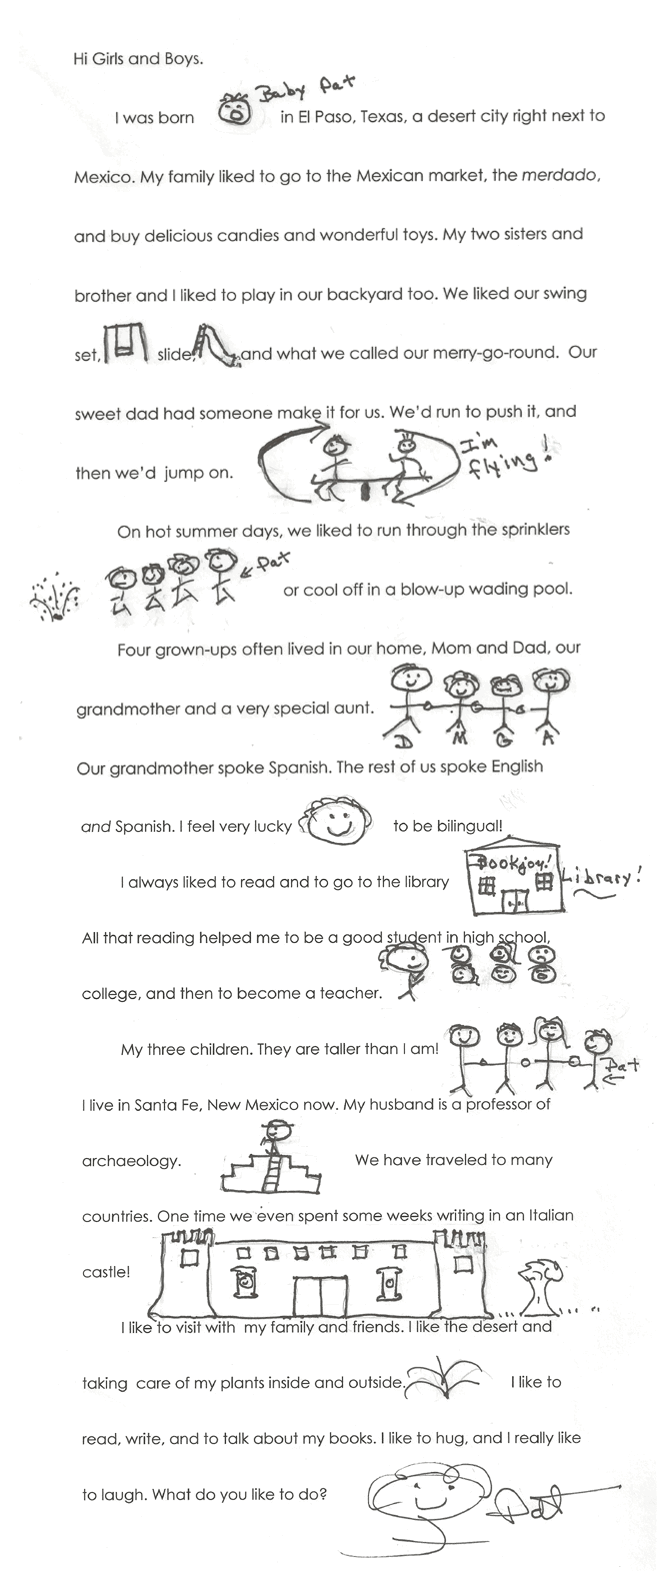 Hi Girls and Boys.
Baby Pat
I was born in El Paso, Texas, a desert city right next to
Mexico. My family liked to go to the Mexican market, the merdado,
and buy delicious candies and wonderful toys. My two sisters and
brother and I liked to play in our backyard too. We liked our swing
set, slide, and what we called our merry-go-round. Our
sweet dad had someone make it for us. We'd run to push it, and
then we'd jump on. I'm
flying!
On hot summer days, we liked to run through the sprinklers
Pat
or cool off in a blow-up wading pool.
Four grown-ups often lived in our home, Mom and Dad, our
grandmother and a very special aunt.
D M G A
Our grandmother spoke Spanish. The rest of us spoke English
and Spanish. I feel very lucky to be bilingual!
Bookjoy!
I always liked to read and to go to the library Library!
All that reading helped me to be a good student in high school,
college, and then to become a teacher.
My three children. They are taller than I am!
Pat
I live in Santa Fe, New Mexico now. My husband is a professor of
archaeology. We have traveled to many
countries. One time we even spent some weeks writing in an Italian
castle!
I like to visit with my family and friends. I like the desert and
taking care of my plants inside and outside. I like to
read, write, and to talk about my books. I like to hug, and I really like
to laugh. What do you like to do? Pat